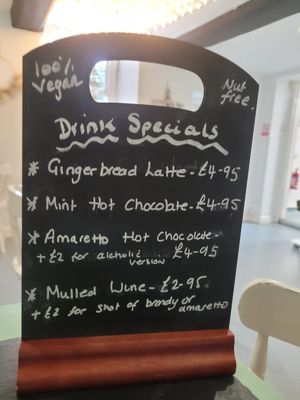 100%
Vegan
Nut
free.
Drink Specials
* Gingerbread Latte - £4-95
* Mint Hot Chocolate - £4-95
* Amaretto Hot Chocolate -
+ £2 for alcholic version £4-95
* Mulled Wine - £2-95
+ £2 for shot of brandy or amaretto